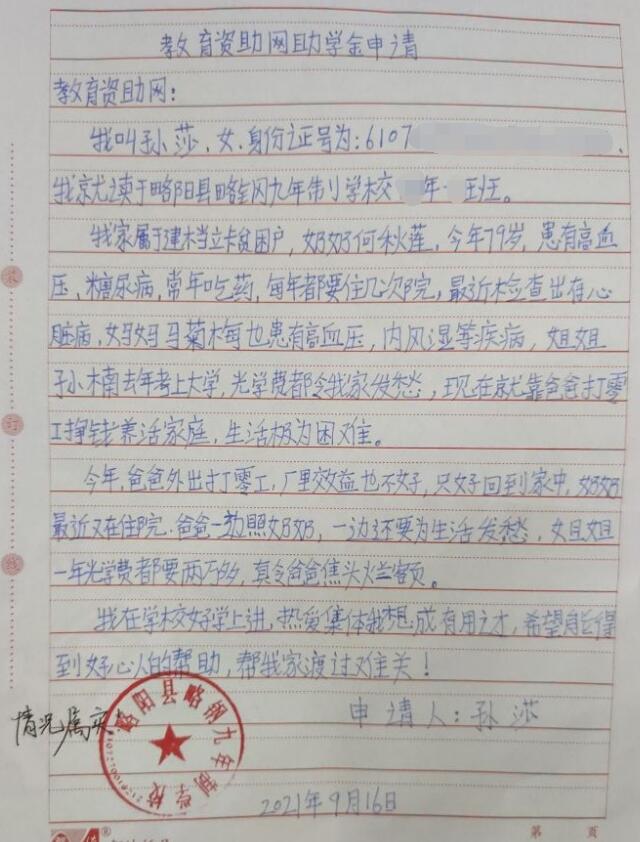 教育资助网助学金申请
教育资助网：
我叫孙莎，女，身份证号为：6107
我就读于略阳县略钢九年制学校 年 班。
我家属于建档立卡贫困户，奶奶何秋莲，今年79岁，患有高血
压、糖尿病，常年吃药，每年都要住几次院，最近检查出有心
脏病，妈妈马菊梅也患有高血压，内风湿等疾病，姐姐
孙楠去年考上大学，光学费都令我家发愁，现在就靠爸爸打零
工挣钱养活家庭，生活极为困难。
今年，爸爸外出打零工，厂里效益也不好，只好回到家中，奶奶
最近又在住院，爸爸一边照奶奶，一边还要为生活发愁，姐姐
一年光学费都要两万多，真令爸爸焦头烂额。
我在学校好学上进，热爱集体我想成有用之才，希望能得
到好心人的帮助，帮我家渡过难关！
申请人：孙莎
情况属实
略阳县略钢九年制学校
2021年9月16日
第 页